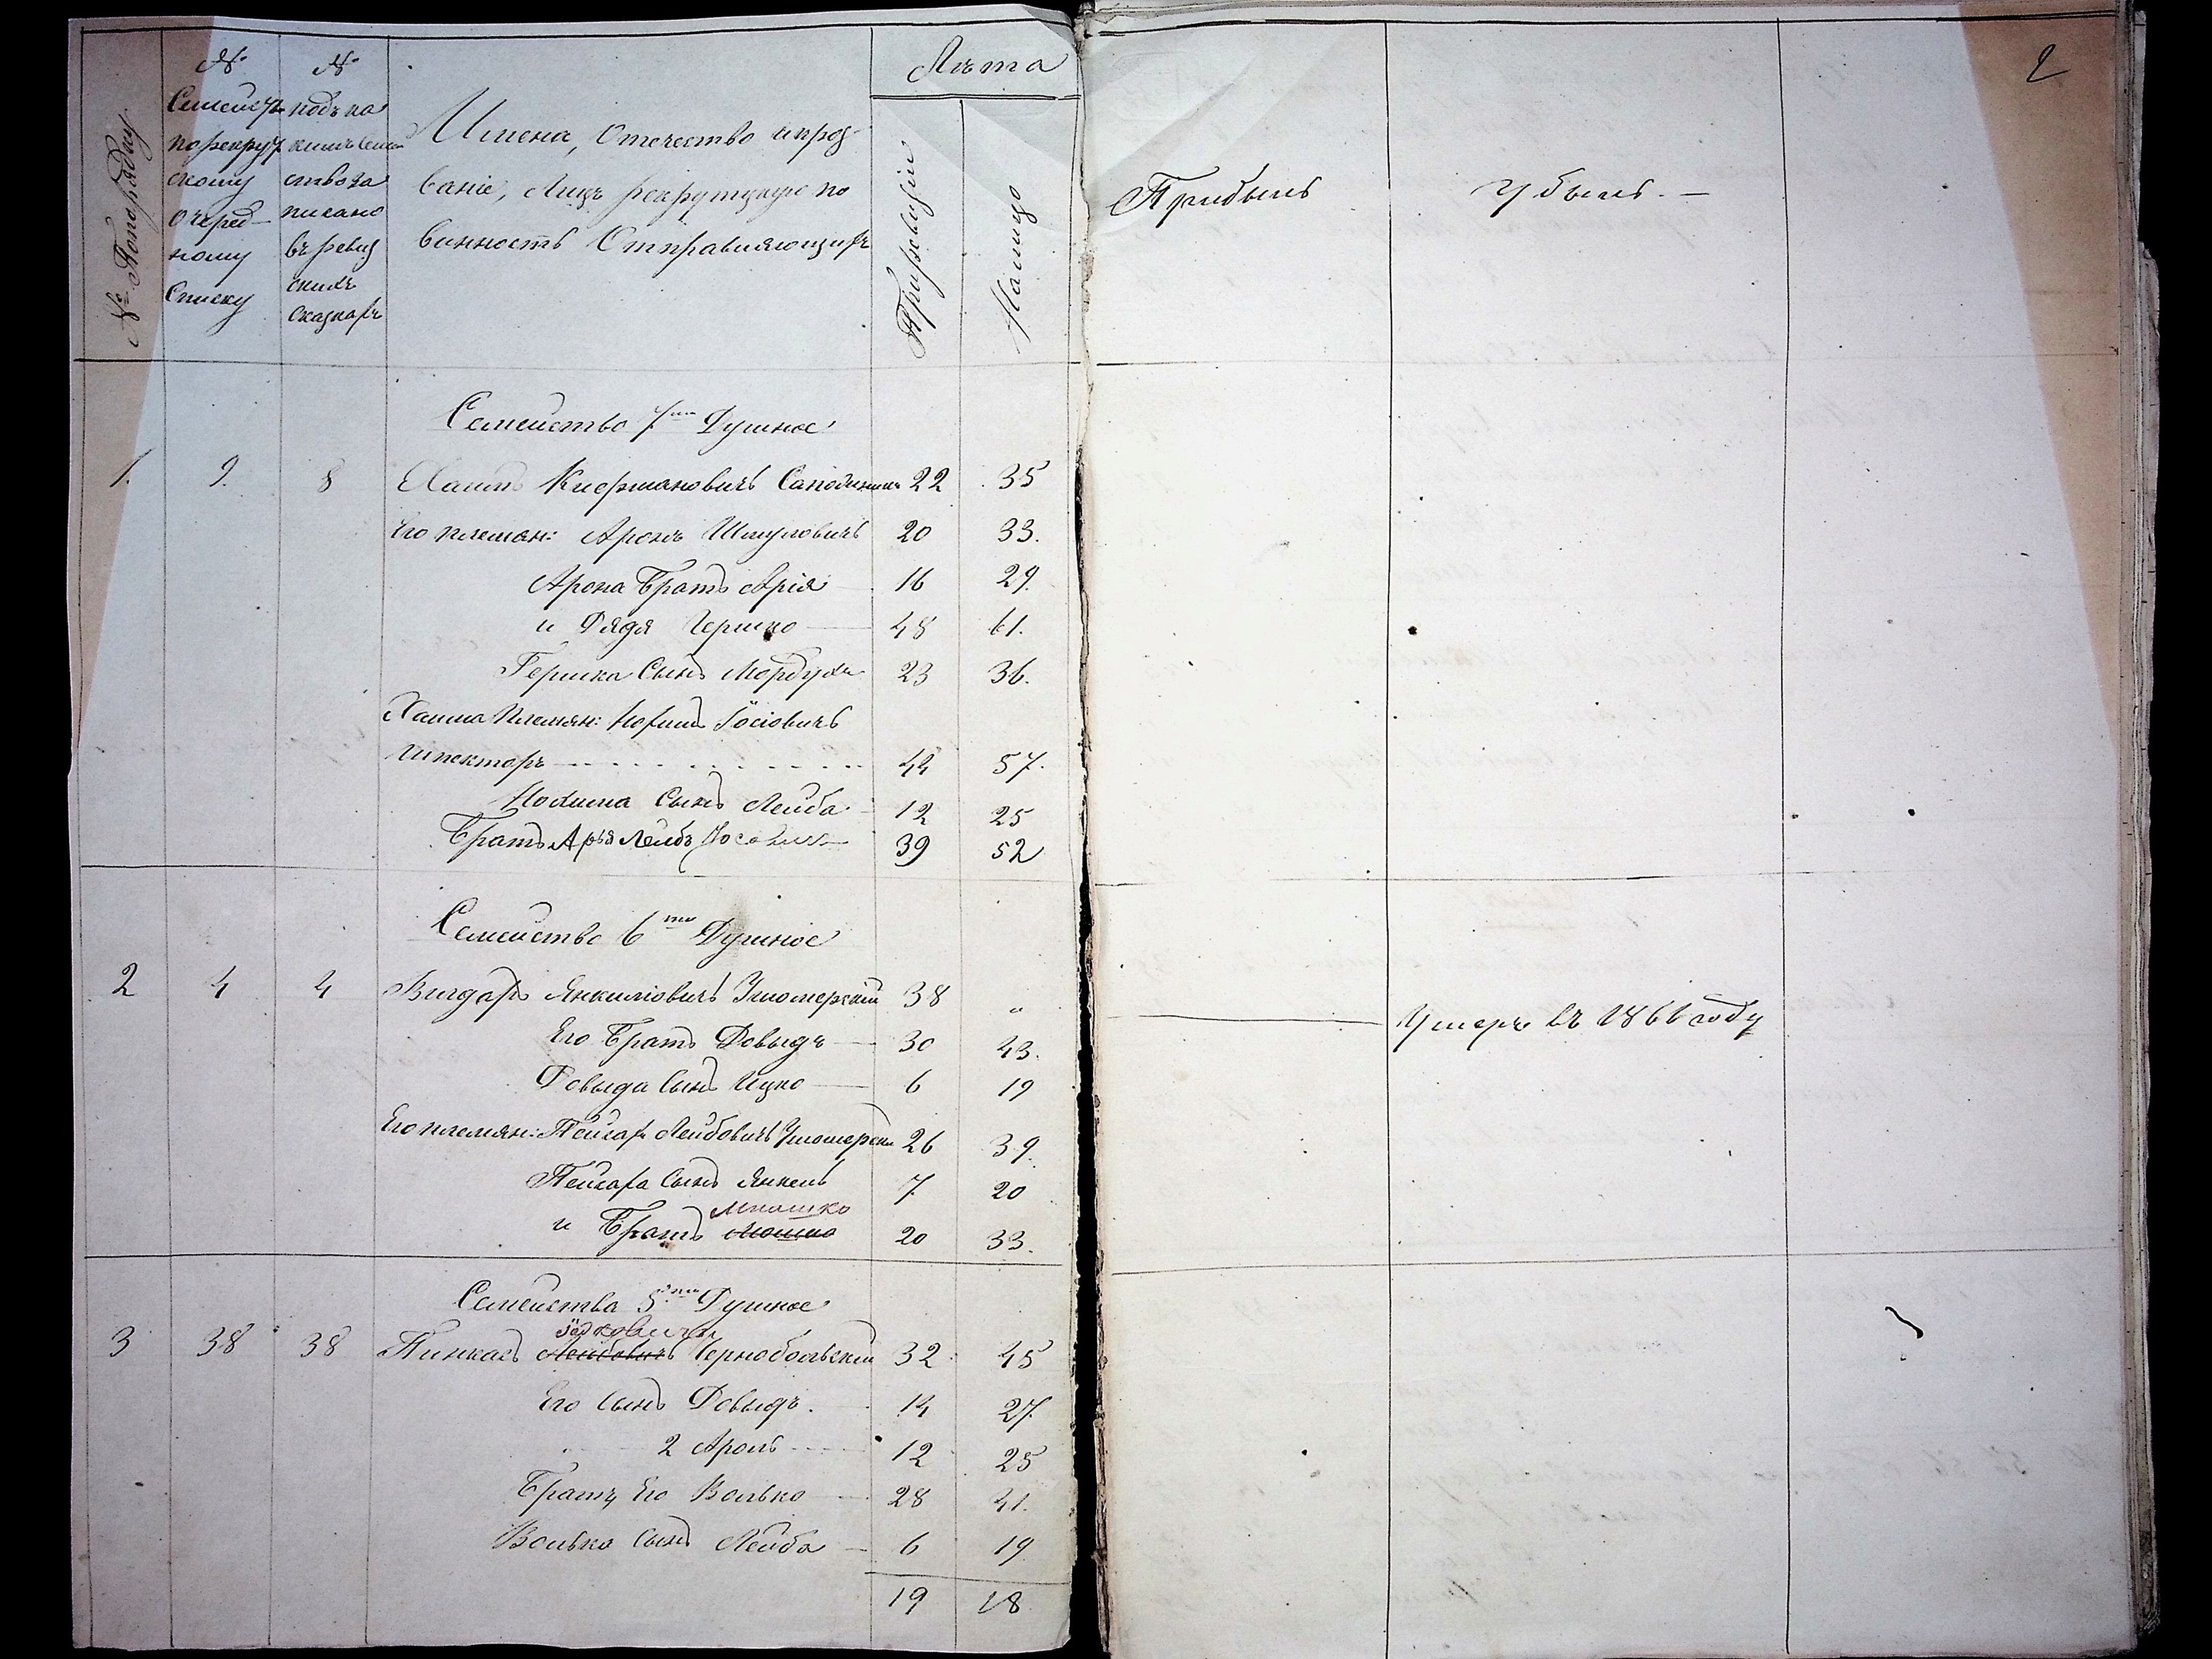 2
№ Попорядку
№ Семейст. порекрут скому очеред- ному Списку
№ подъ ка кимъ семей ствоза писано въ ревиз скихъ сказкахъ
Имена, Отечество ипроз-
ваніе, Лицъ рекрутцкую по
винность Отправляющихъ
Лѣта
Приревизіи
Налицо
Прибыль
Убыль. —
Семейство 7ми Душное
1. 9. 8 Хаимъ 22 35
Его племян: Аронъ Шмуловичъ 20 33.
Арона Братъ Арія 16 29.
и Дядя Гершко 48 61.
Гершка Сынъ Мордухъ 23 36.
Хаима Племян: Нохимъ Іосіовичъ
Шпекторъ 44 57.
Нохима Сынъ Лейба 12 25
Братъ Арья Лейбъ 39 52
Семейство 6ти Душное
2 4 4 Вигдоръ Янкиліовичъ 38 „ Умеръ въ 1861 году
Его Братъ Довыдъ 30 43.
Довыда Сынъ Ицко 6 19
Его племян: Пейсахъ Лейбовичъ 26 39.
Пейсаха Сынъ Янкель 7 20
Мошко
и Братъ 20 33.
Семейства 5ти Душное
3 38 38 Пинкасъ Лейбовичъ Чернобольскій 32 45
Его Сынъ Довыдъ. 14 27.
2 Аронъ 12 25
Братъ Его Волько 28 41.
Волька Сынъ Лейба 6 19
19 18